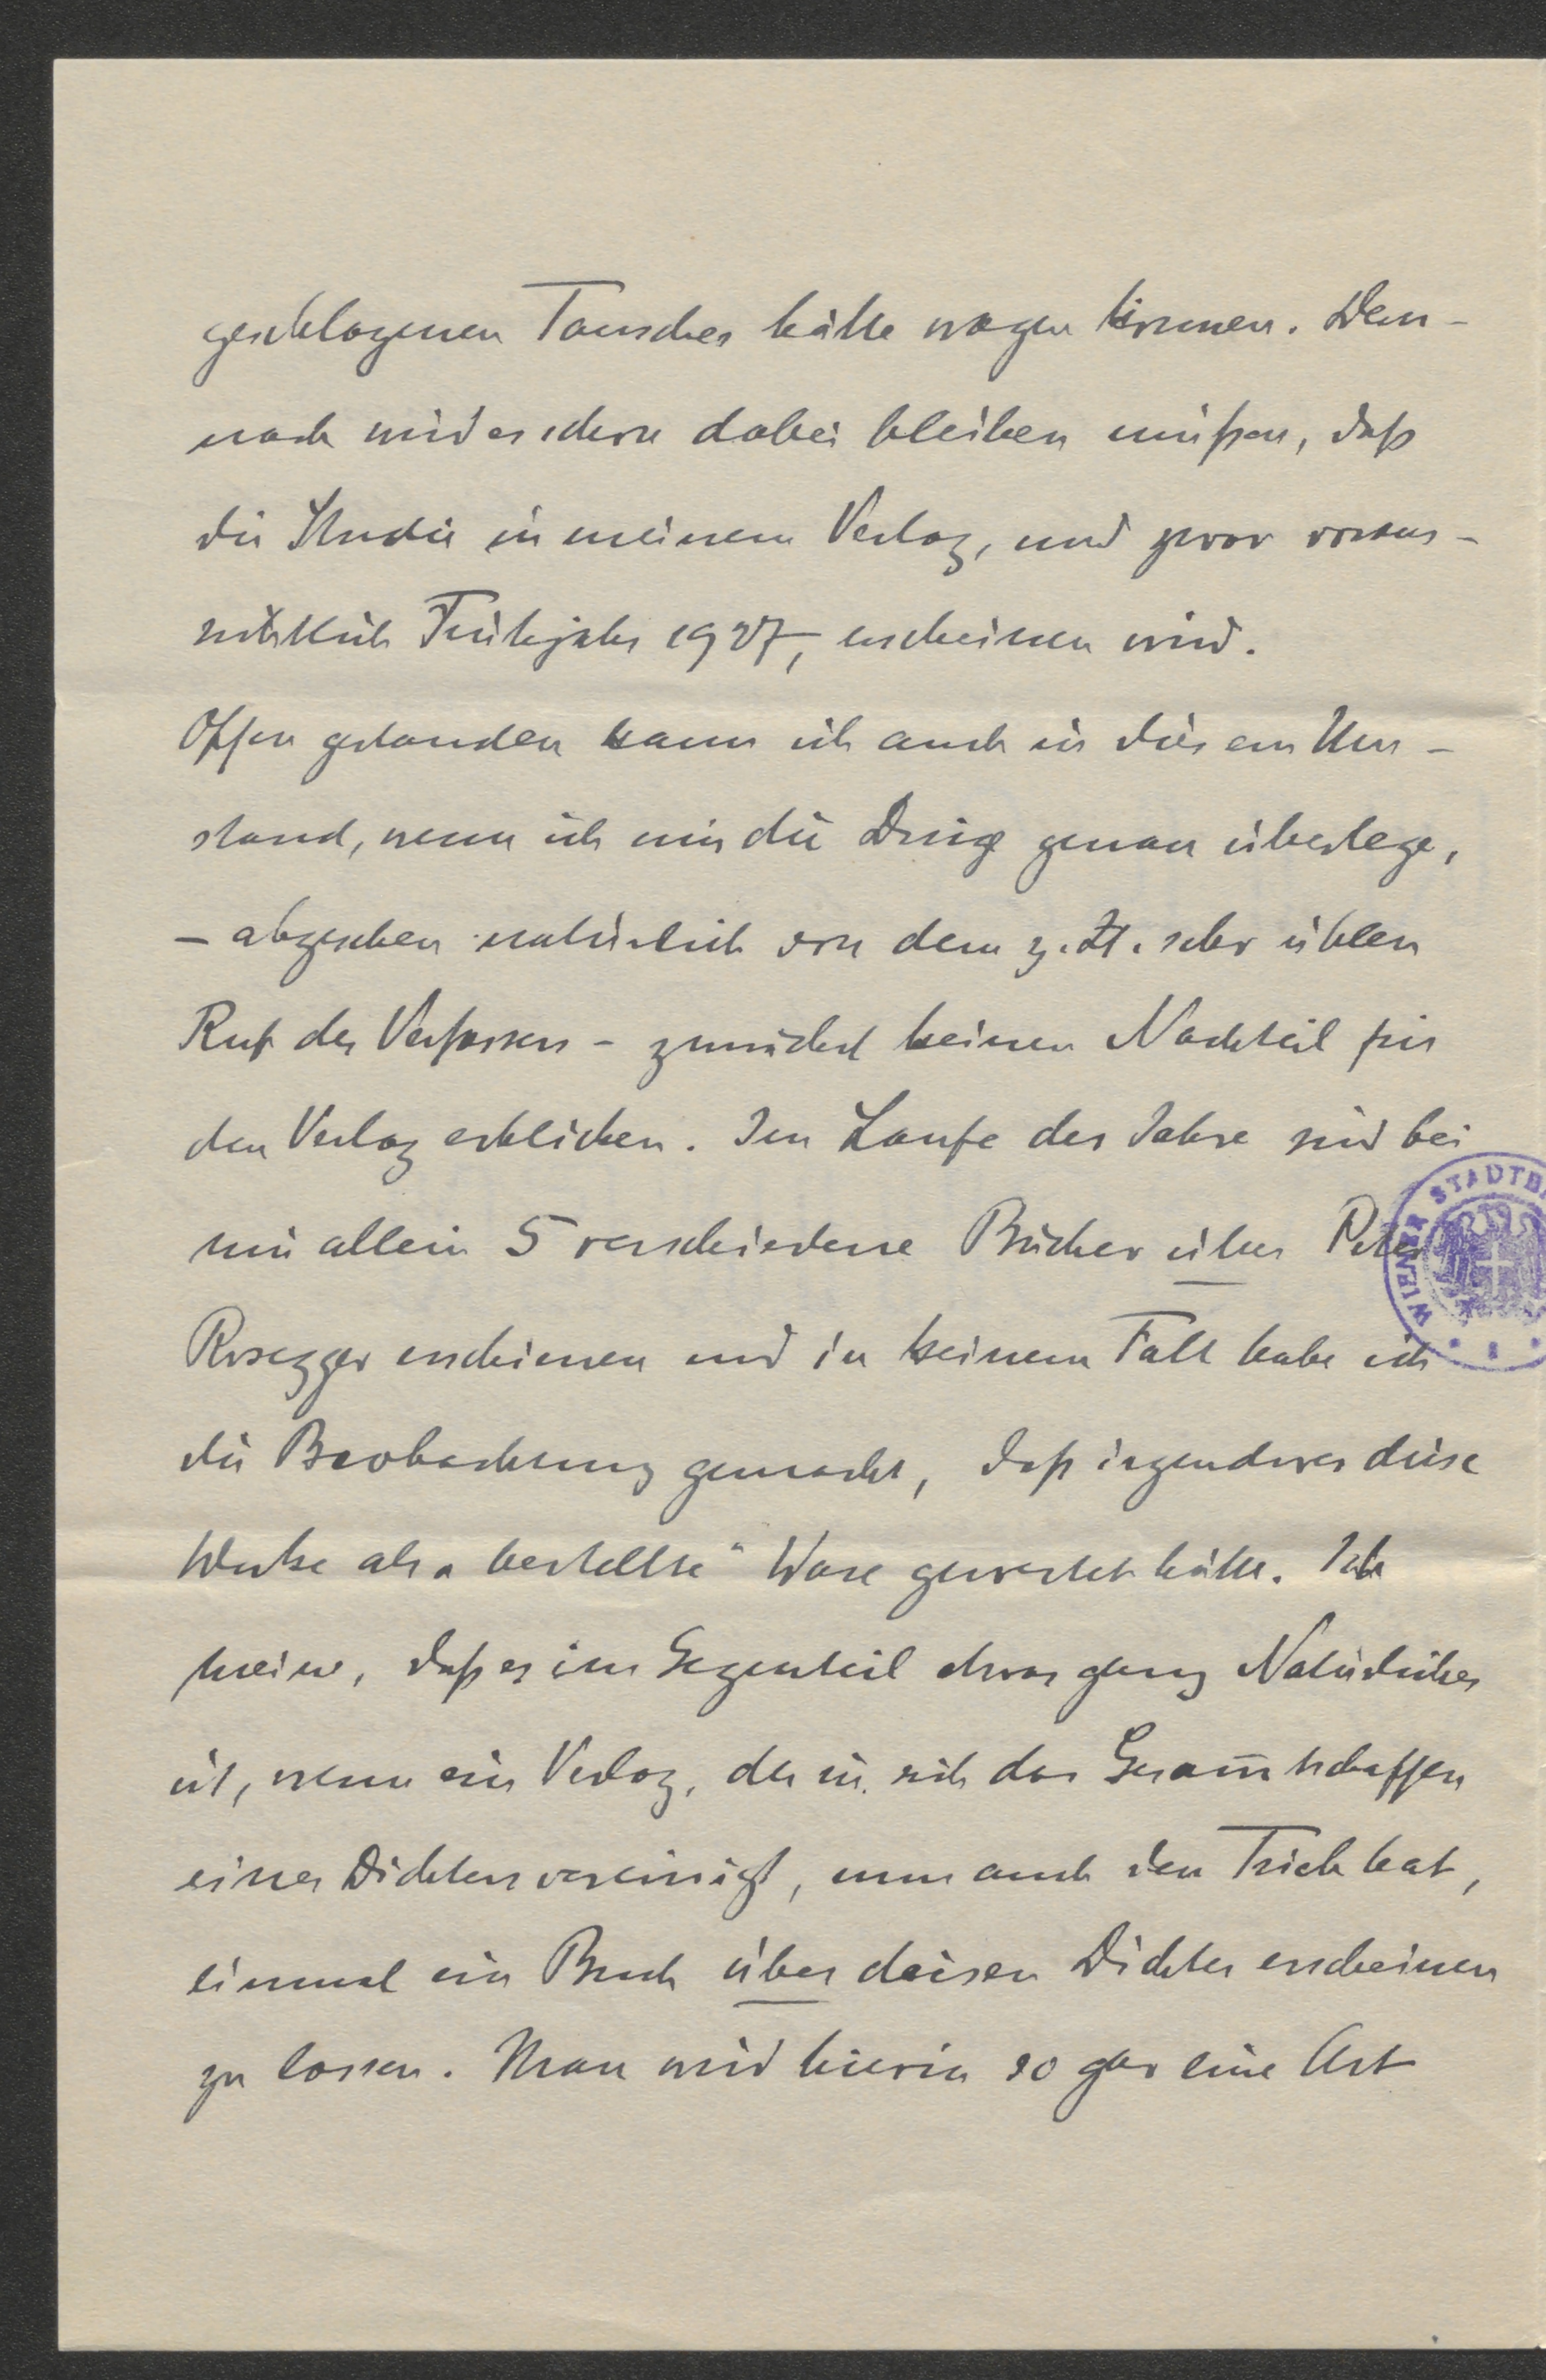 geschlagenen Tausches hätte wagen können. Dem-
nach wird es schon dabei bleiben müßen, daß
die Studie in meinem Verlag, und zwar voraus-
sichtlich Frühjahr 1927, erscheinen wird.
Offen gestanden kann ich auch in diesem Um-
stand, wenn ich mir die Dinge genau überlege,
– abgesehen natürlich von dem z. Zt. sehr üblen
Ruf des Verfassers – zunächst keinen Nachteil für
den Verlag erblicken. Im Laufe der Jahre sind bei
mir allein 5 verschiedene Bücher über Peter
Rosegger erschienen und in keinem Fall habe ich
die Beobachtung gemacht, daß irgendwer diese
Werke als „bestellte" Ware gewertet hätte. Ich
meine, daß es im Gegenteil etwas ganz Natürliches
ist, wenn ein Verlag, der in sich das Gesam̅tschaffen
eines Dichters vereinigt, nun auch den Trieb hat,
einmal ein Buch über diesen Dichter erscheinen
zu lassen. Man wird hierin sogar eine Art
WIENER STADTB